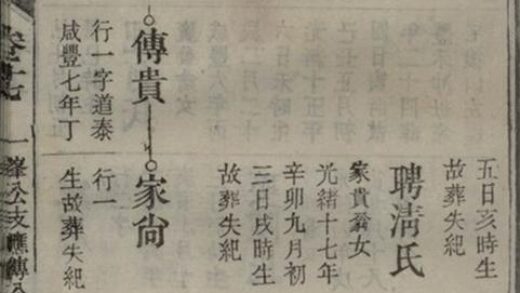 五日亥時生
故葬失紀
聘淸氏
家貴翁女
光緒十七年
辛卯九月初
三日戌時生
故葬失紀
傳貴
行一字道泰
咸豐七年丁
家尙
行一
生故葬失紀
一峯公支應傳公